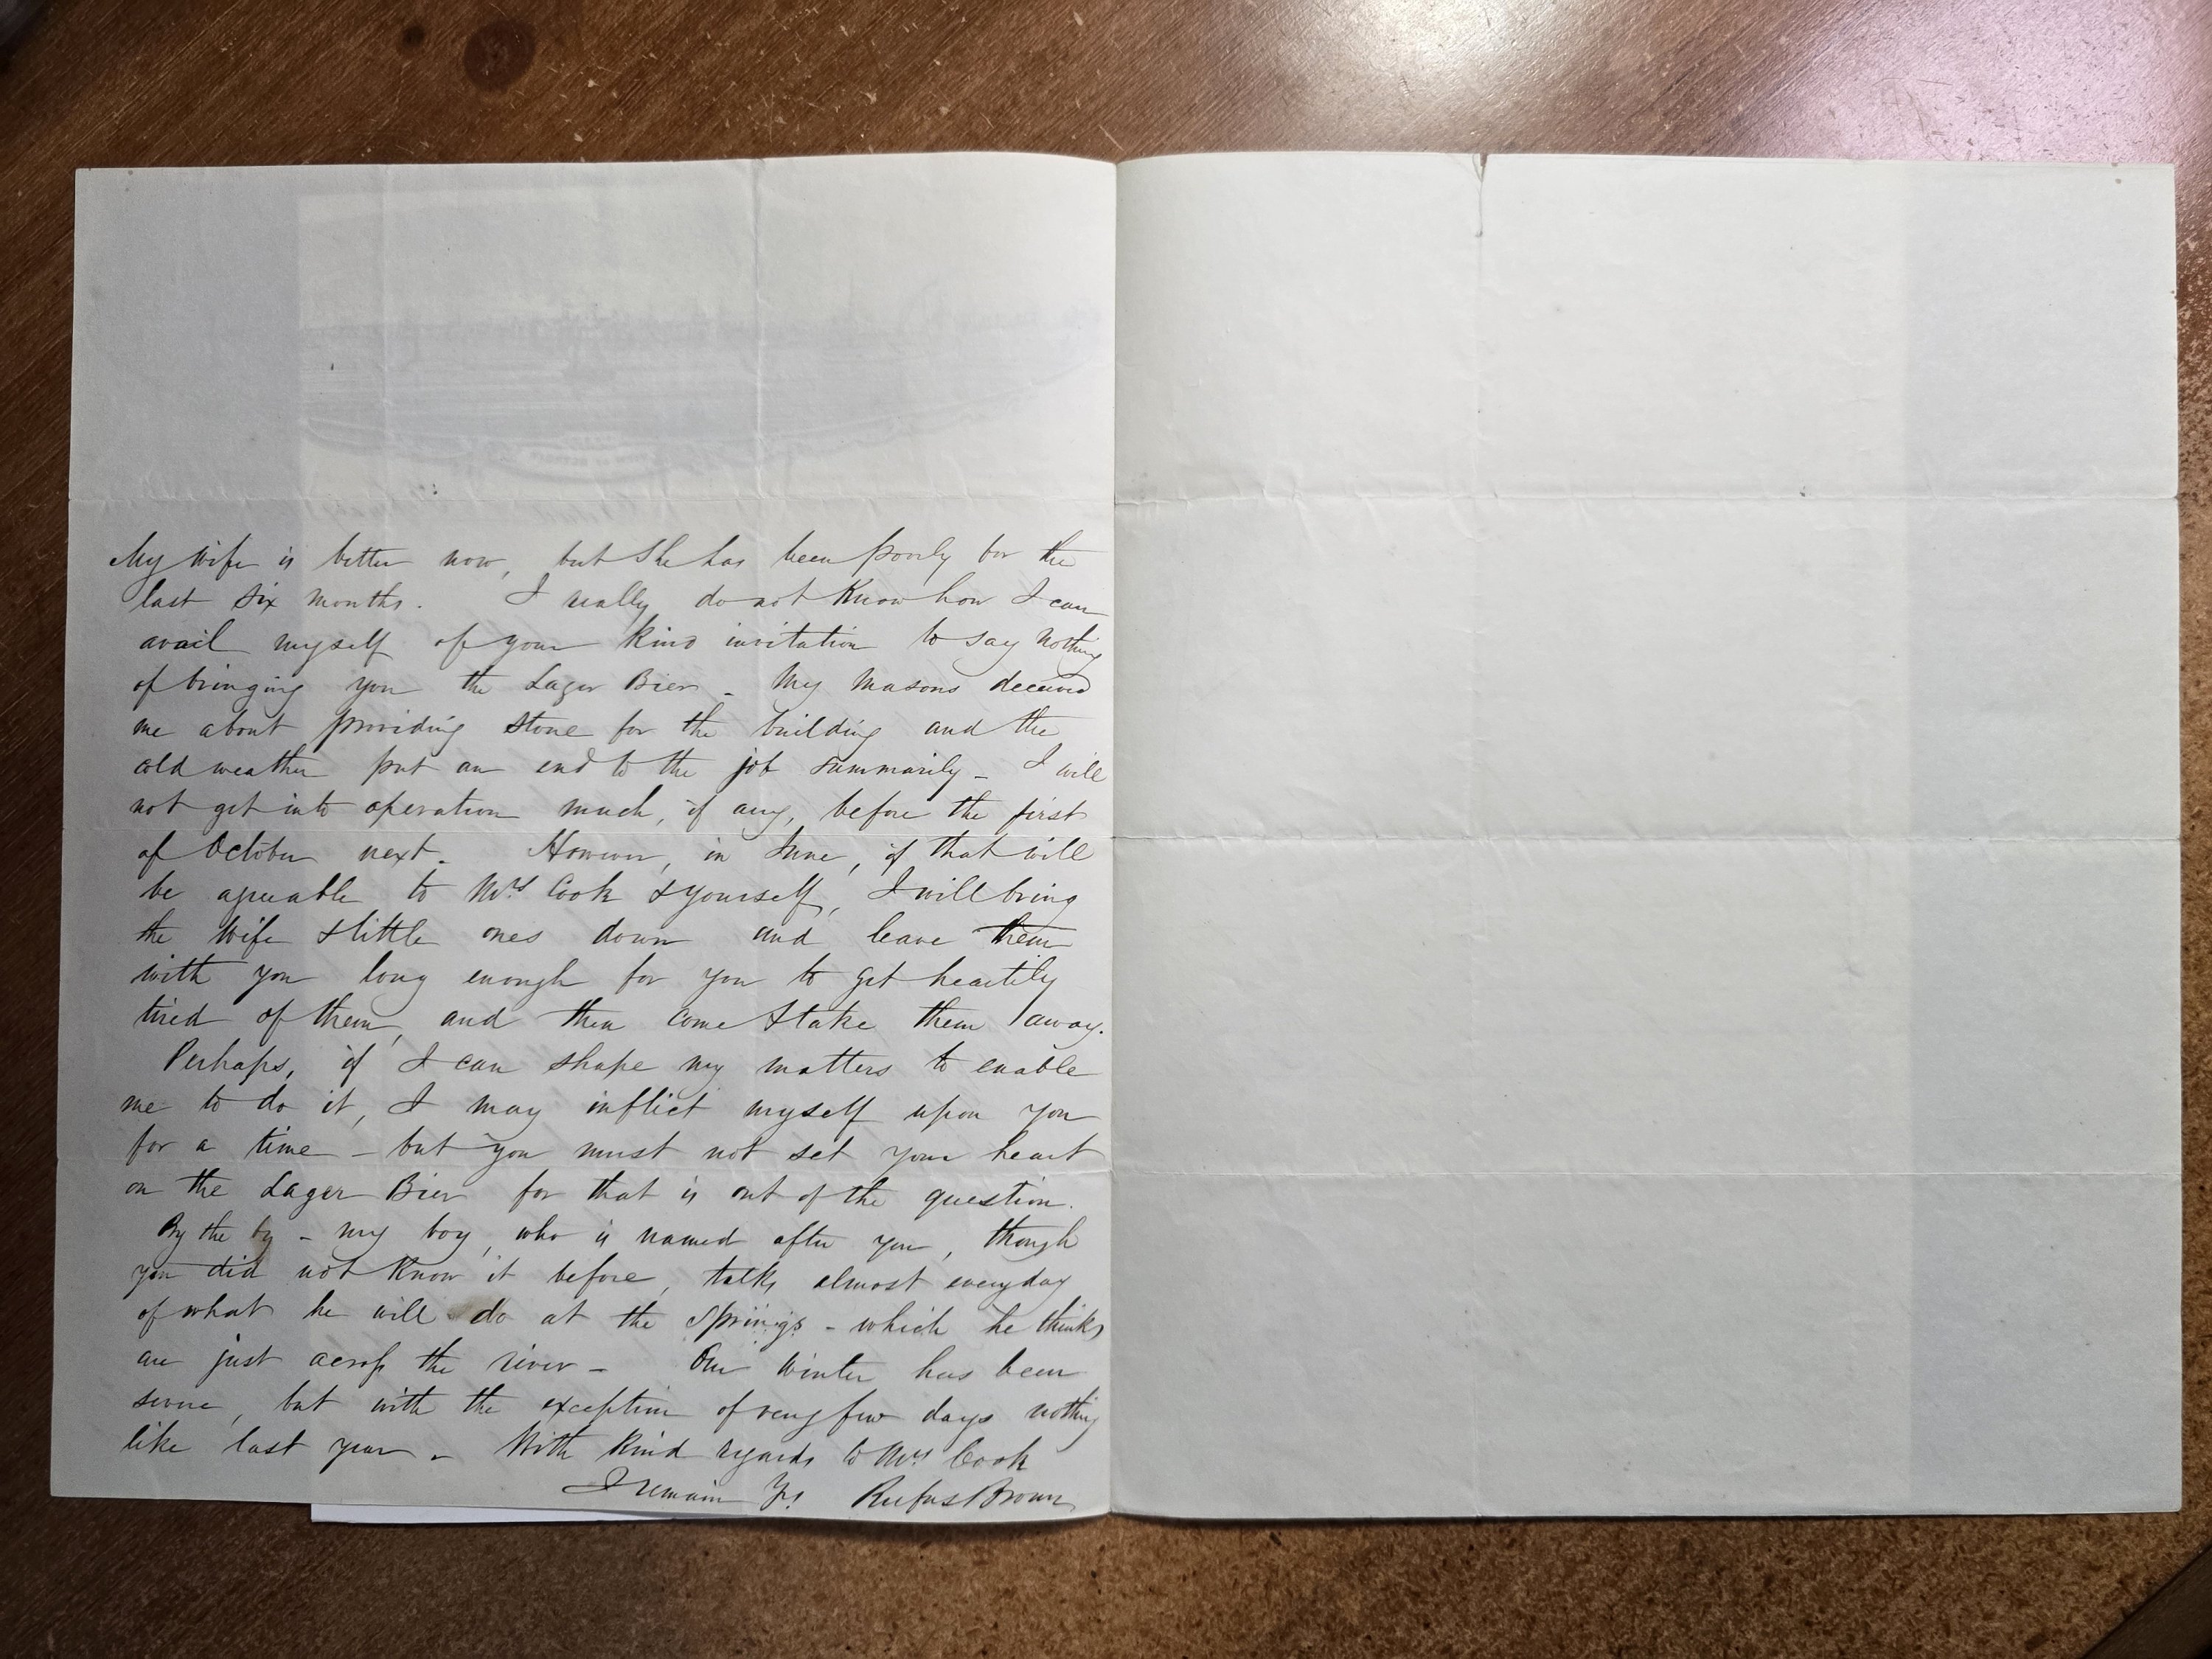 My Wife is better now, but She has been poorly for the
last six months. I really do not Know how I can
avail myself of your Kind invitation to say nothing
of bringing you the Lager Bier - My Masons deceived
me about providing stone for the building and the
cold weather put an end to the job summarily - I will
not get into operation much, if any, before the first
of October next. However, in June, if that will
be agreeable to Mrs Cook & yourself, I will bring
the Wife & little ones down and leave them
with you long enough for you to get heartily
tired of them, and then come & take them away.
Perhaps, if I can shape my matters to enable
me to do it, I may inflict myself upon you
for a time - but you must not set your heart
on the Lager Bier for that is out of the question.
By the by - my boy, who is named after you, though
you did not Know it before, talks almost everyday
of what he will do at the Springs - which he thinks
are just across the river - Our Winter has been
severe, but with the exception of very few days nothing
like last year - With Kind regards to Mrs Cook
I remain Yrs Rufus Brown